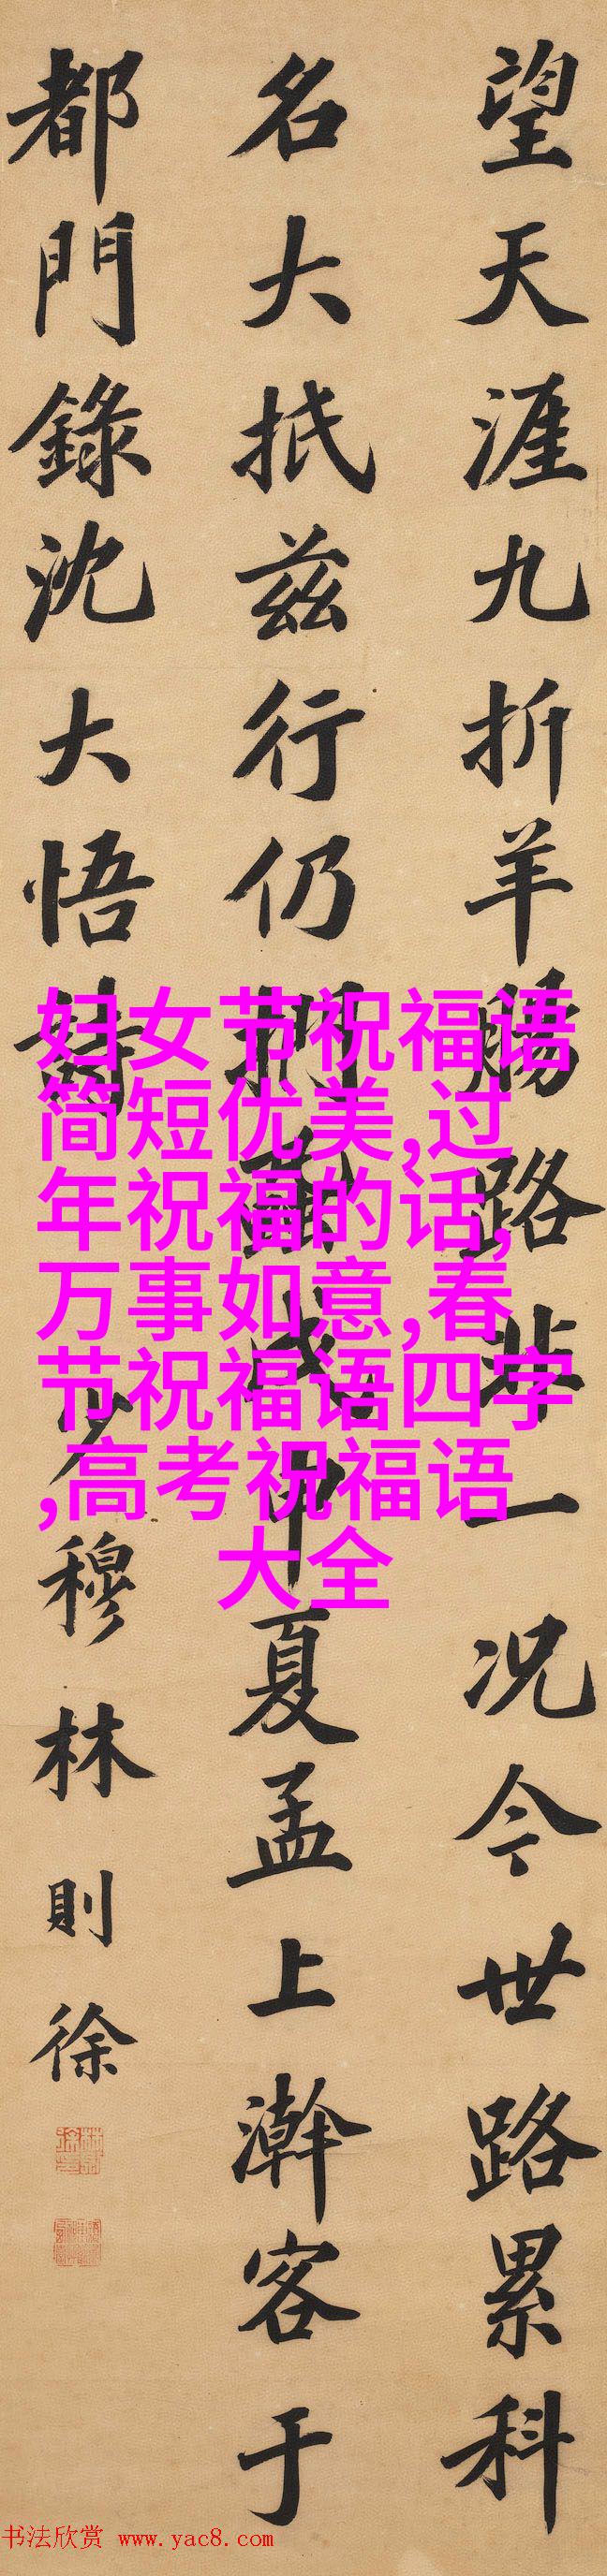 望天涯九折羊腸路非一况今世路累科
名大抵兹行仍捫蝨戊申夏孟上澣客于
都門錄沈大悟詩少穆林則徐
妇女节祝福语
简短优美,过
年祝福的话,
万事如意,春
节祝福语四字
,高考祝福语
大全
书法欣赏 www.yac8.com